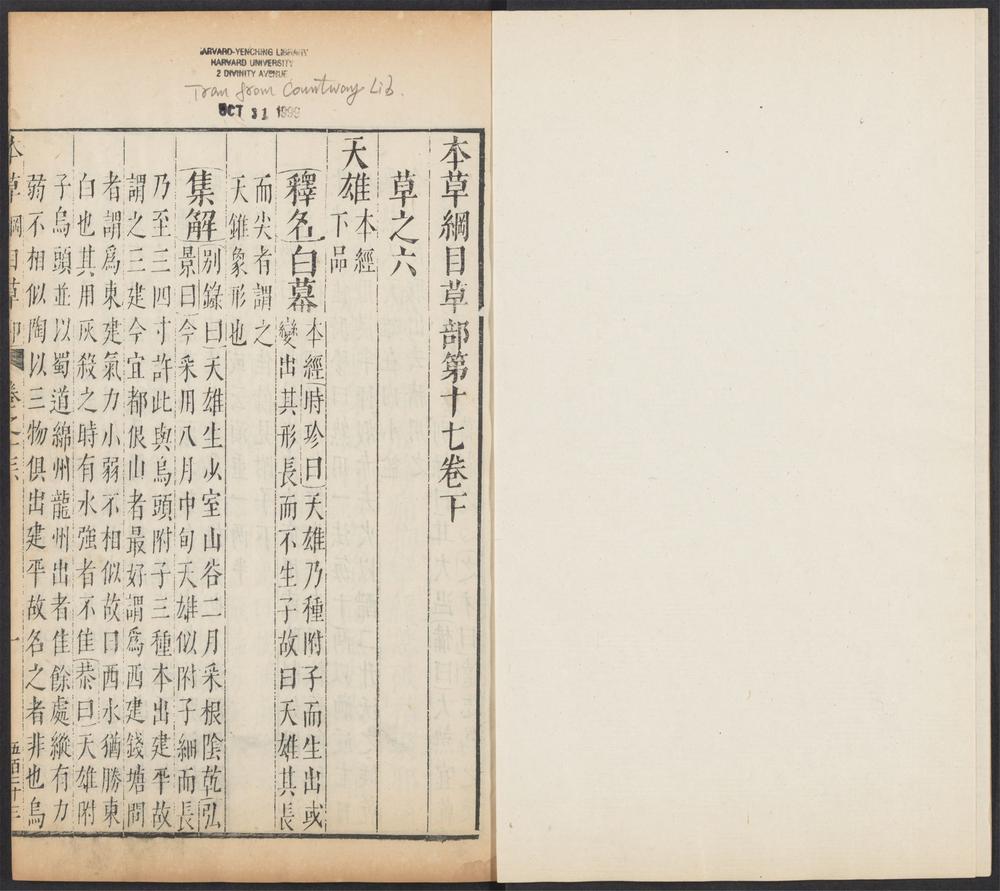 HARVARD-YENCHING LIBRARY
HARVARD UNIVERSITY
2 DIVINITY AVENUE
Tran from Countway Lib.
OCT 31 1999
本草綱目草部第十七卷下
草之六
天雄本經
下品
釋名白幕本經時珍曰天雄乃種附子而生出或
變出其形長而不生子故曰天雄其長
而尖者謂之
天錐象形也
集解别錄曰天雄生少室山谷二月采根陰乾弘
景曰今采用八月中旬天雄似附子細而長
乃至三四寸許此與烏頭附子三種本出建平故
謂之三建今宜都佷山者最好謂爲西建錢塘間
者謂爲東建氣力小弱不相似故曰西水猶勝東
白也其用灰殺之時有水強者不佳恭曰天雄附
子烏頭並以蜀道綿州龍州出者佳餘處縱有力
弱不相似陶以三物俱出建平故名之者非也烏
本草綱目草部 卷之 一